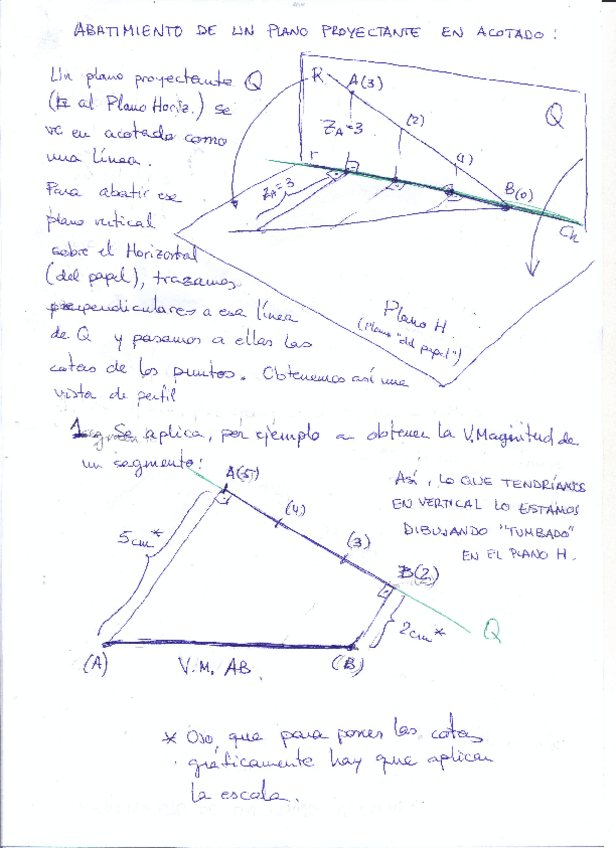 ABATIMIENTO DE UN PLANO PROYECTANTE EN ACOTADO:
Un plano proyectante Q
(⊥ al Plano Horiz.) se
ve en acotado como
una línea.
Para abatir ese
plano vertical
sobre el Horizontal
(del papel), trazamos
perpendiculares a esa línea
de Q y pasamos a ellas las
cotas de los puntos. Obtenemos así una
vista de perfil
R
A(3)
Q
ZA=3
(2)
(1)
r
B(0)
ZA=3
Ch
Plano H
(Plano "del papel")
1 Se aplica, por ejemplo a obtener la V.Magnitud de
un segmento:
A(5)
ASÍ, LO QUE TENDRÍAMOS
EN VERTICAL LO ESTAMOS
DIBUJANDO "TUMBADO"
EN EL PLANO H.
(4)
5cm*
(3)
B(2)
2cm*
Q
(A)
V.M. AB.
(B)
* Ojo, que para poner las cotas
gráficamente hay que aplicar
la escala.